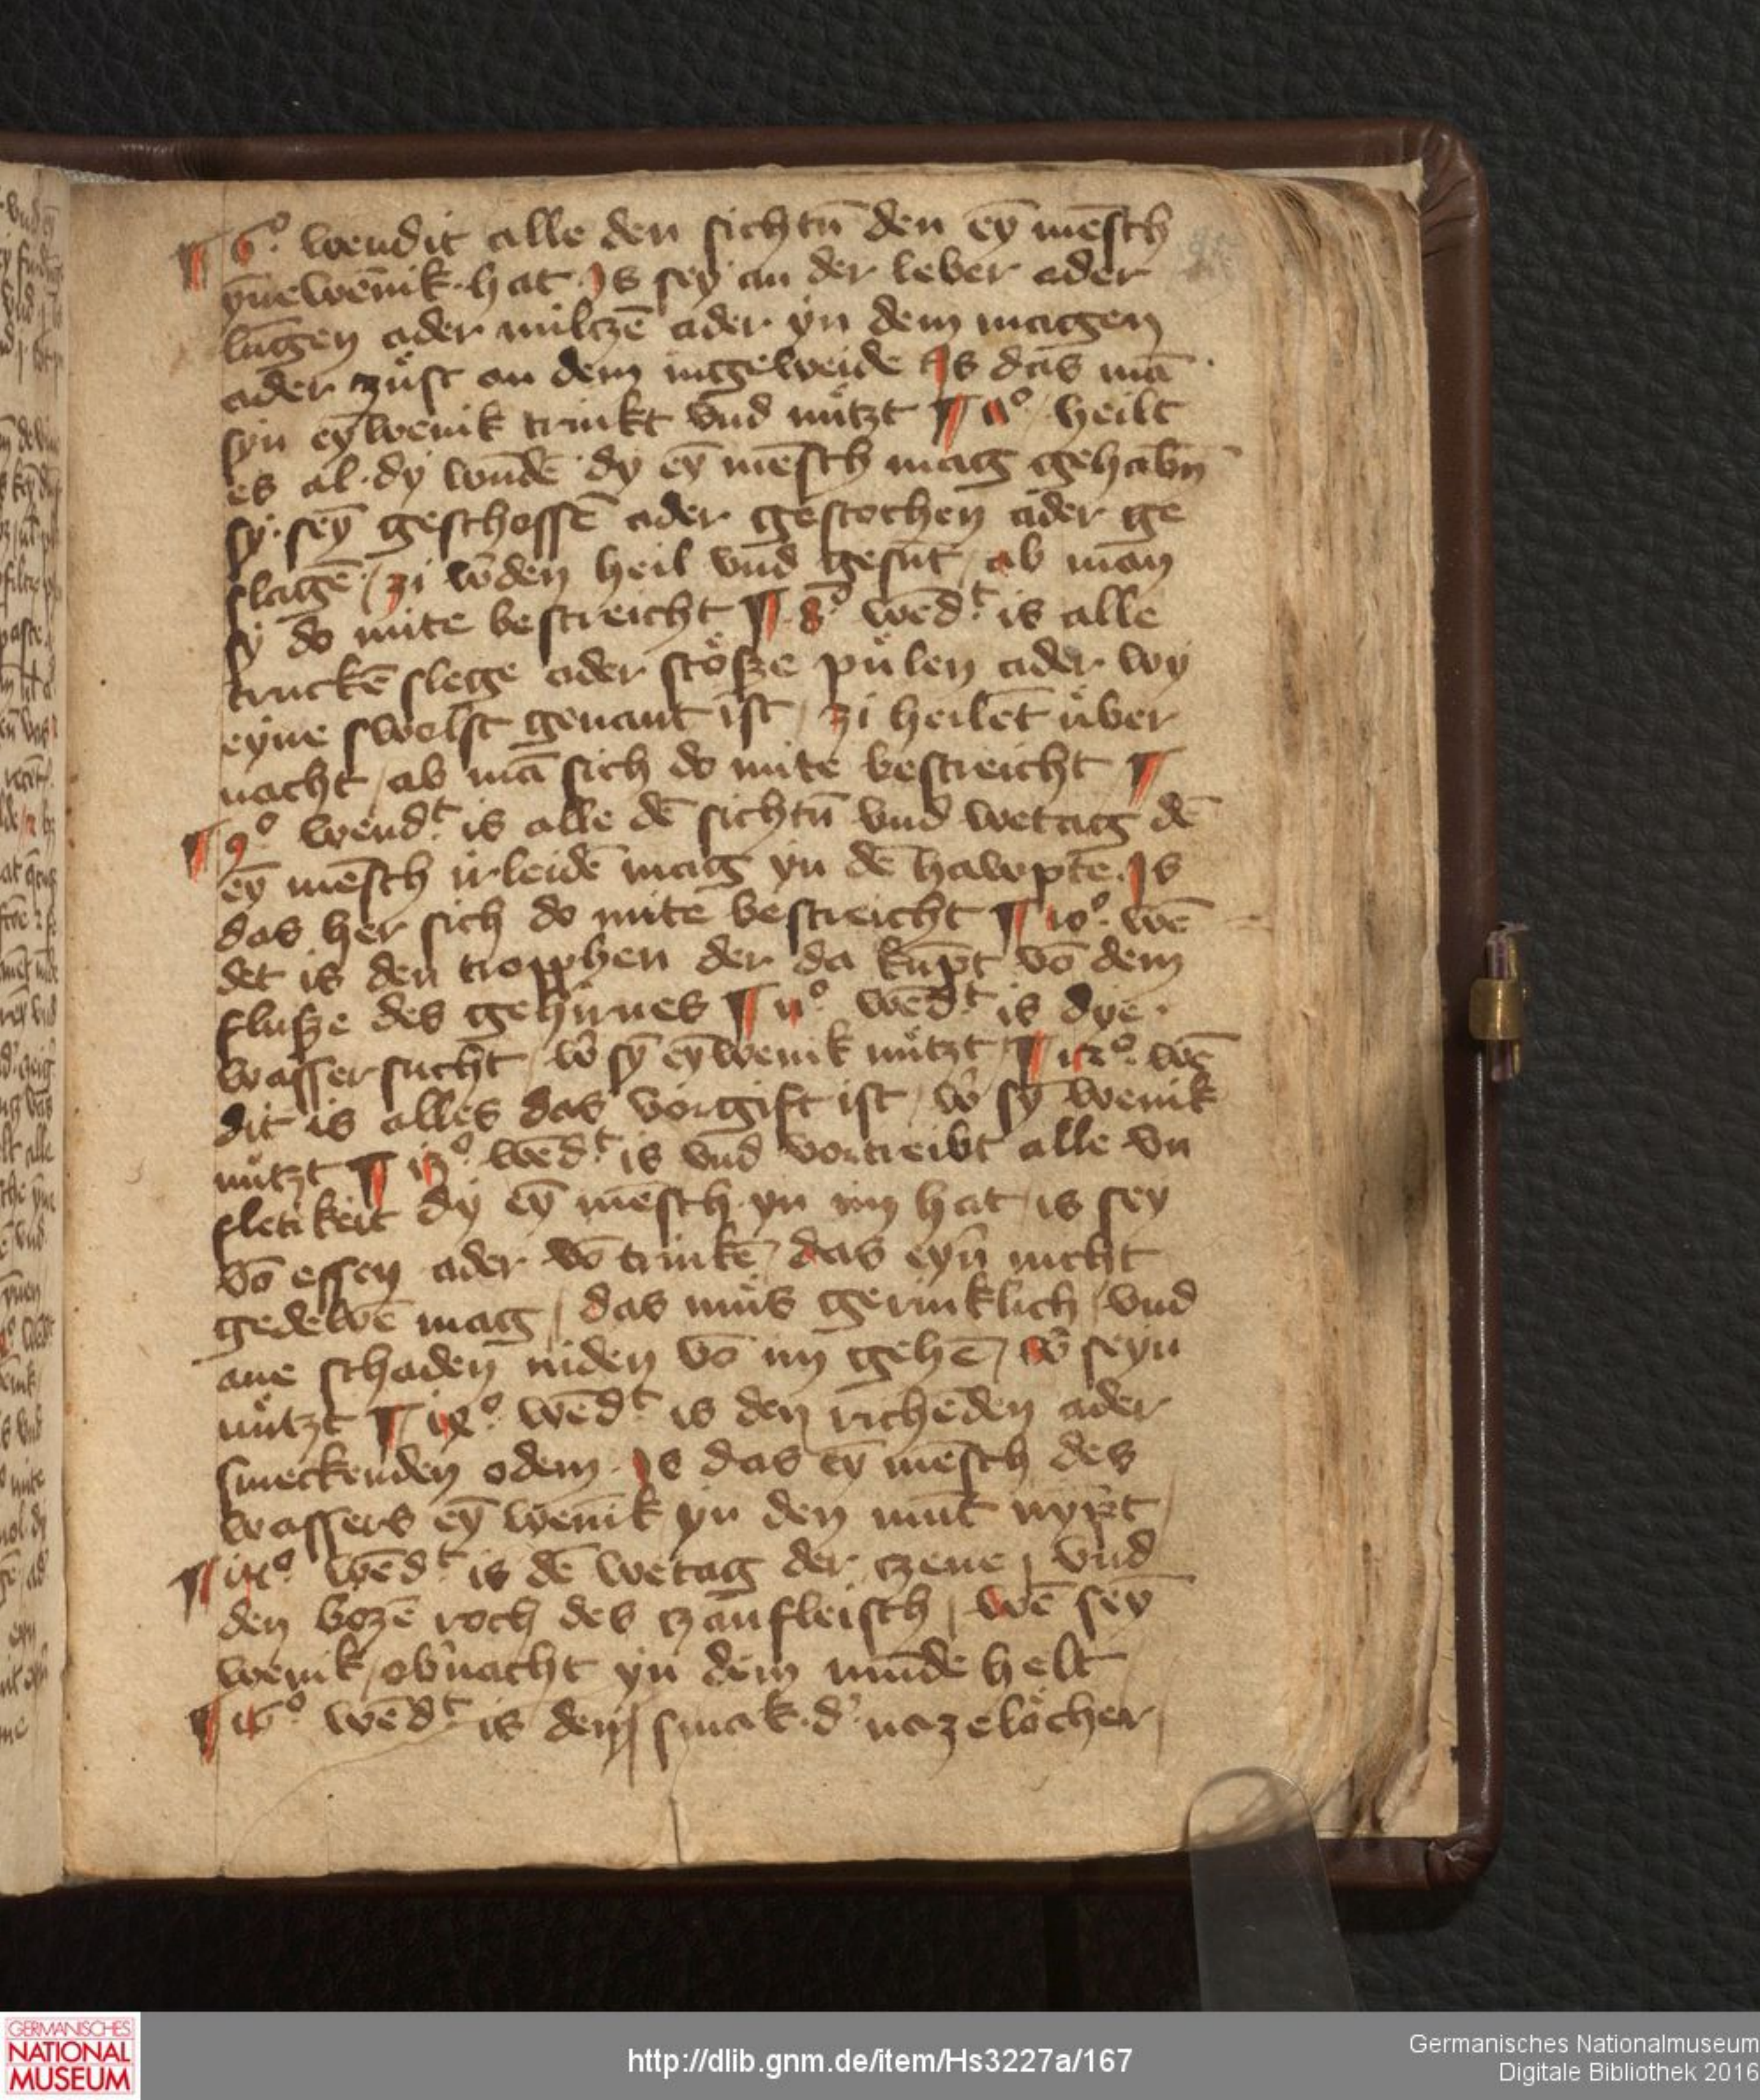 ¶ 6º wendit alle den sichtū den eȳ mēsch
ynewēnik · hat · Is sey an der leber ader
lūngen ader milczē ader yn dem magen
ader czust an dem ingeweide Is das mā
syn eȳ wenik trinkt vnd nützt ¶ 𝟩º heilt
es al · dy wūdē dy eȳ mēsch mag gehabn̄
sy · seȳ geschossē ader gestochen ader ge
slagē / zi w̄den heil vnd gesūt / ab man
sy do mite bestreicht ¶ 8º wēd᷑t is alle
truckē slege ader stösze pülen ader wy
eyne swolst genant ist / zi heilēt über
nacht / ab mā sich do mite bestreicht ¶
¶ 9º wend᷑t is alle dē sichtū vnd wetag dē
eȳ mēsch irleidē mag yn dē hawpte · Is
das her sich do mite bestreicht ¶ 10º wē
det is den tropphen der da kūpt vō dem
flusze des gehirnes ¶ 11º wēd᷑t is dye
wassersucht / w̄ sȳ eȳ wenik nützt ¶ 12º wē
dit is alles das vorgift ist / w̄ sȳ wenik
nützt ¶ 13º wēd᷑t is vnd vortreibt alle vn
fletikeit dy eȳ mēsch yn im hat / is sey
vō essen ader vō trinkē / das eyn̄ nicht
gedewē mag / das mus gerinklich / vnd
ane schaden niden vō im gehē / w̄ seyn
nützt ¶ 14º wēd᷑t is den richēden ader
smeckenden odem · Is das eȳ mēsch des
wassers eȳ wenik yn den mūt nȳpt
¶ 15º wēd᷑t is dē wetag der czene / vnd
den bozē roch des czanfleisch / wē seȳ
wenik / ob᷑nacht yn dem mūde helt
¶ 16º wēd᷑t is den smak · d᷑ nazelöcher /
GERMANISCHES
NATIONAL
MUSEUM
http://dlib.gnm.de/item/Hs3227a/167
Germanisches Nationalmuseum
Digitale Bibliothek 2016